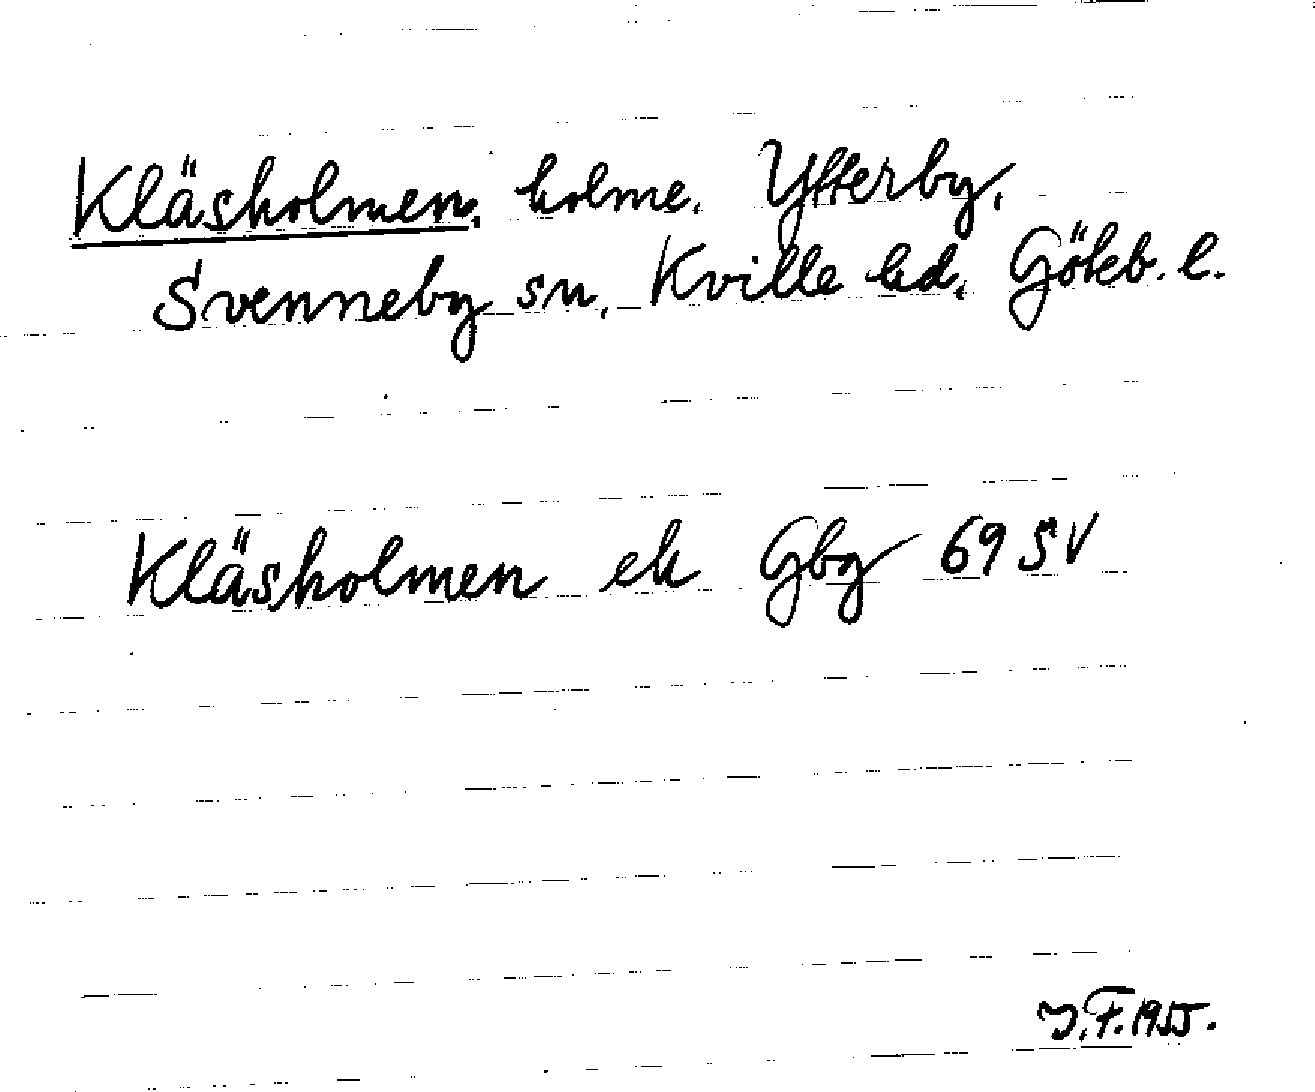 Kläsholmen, holme, Ytterby,
Svenneby sn, Kville hd, Göteb. l.
Kläsholmen ek Gbg 69 SV
J.F. 1955.